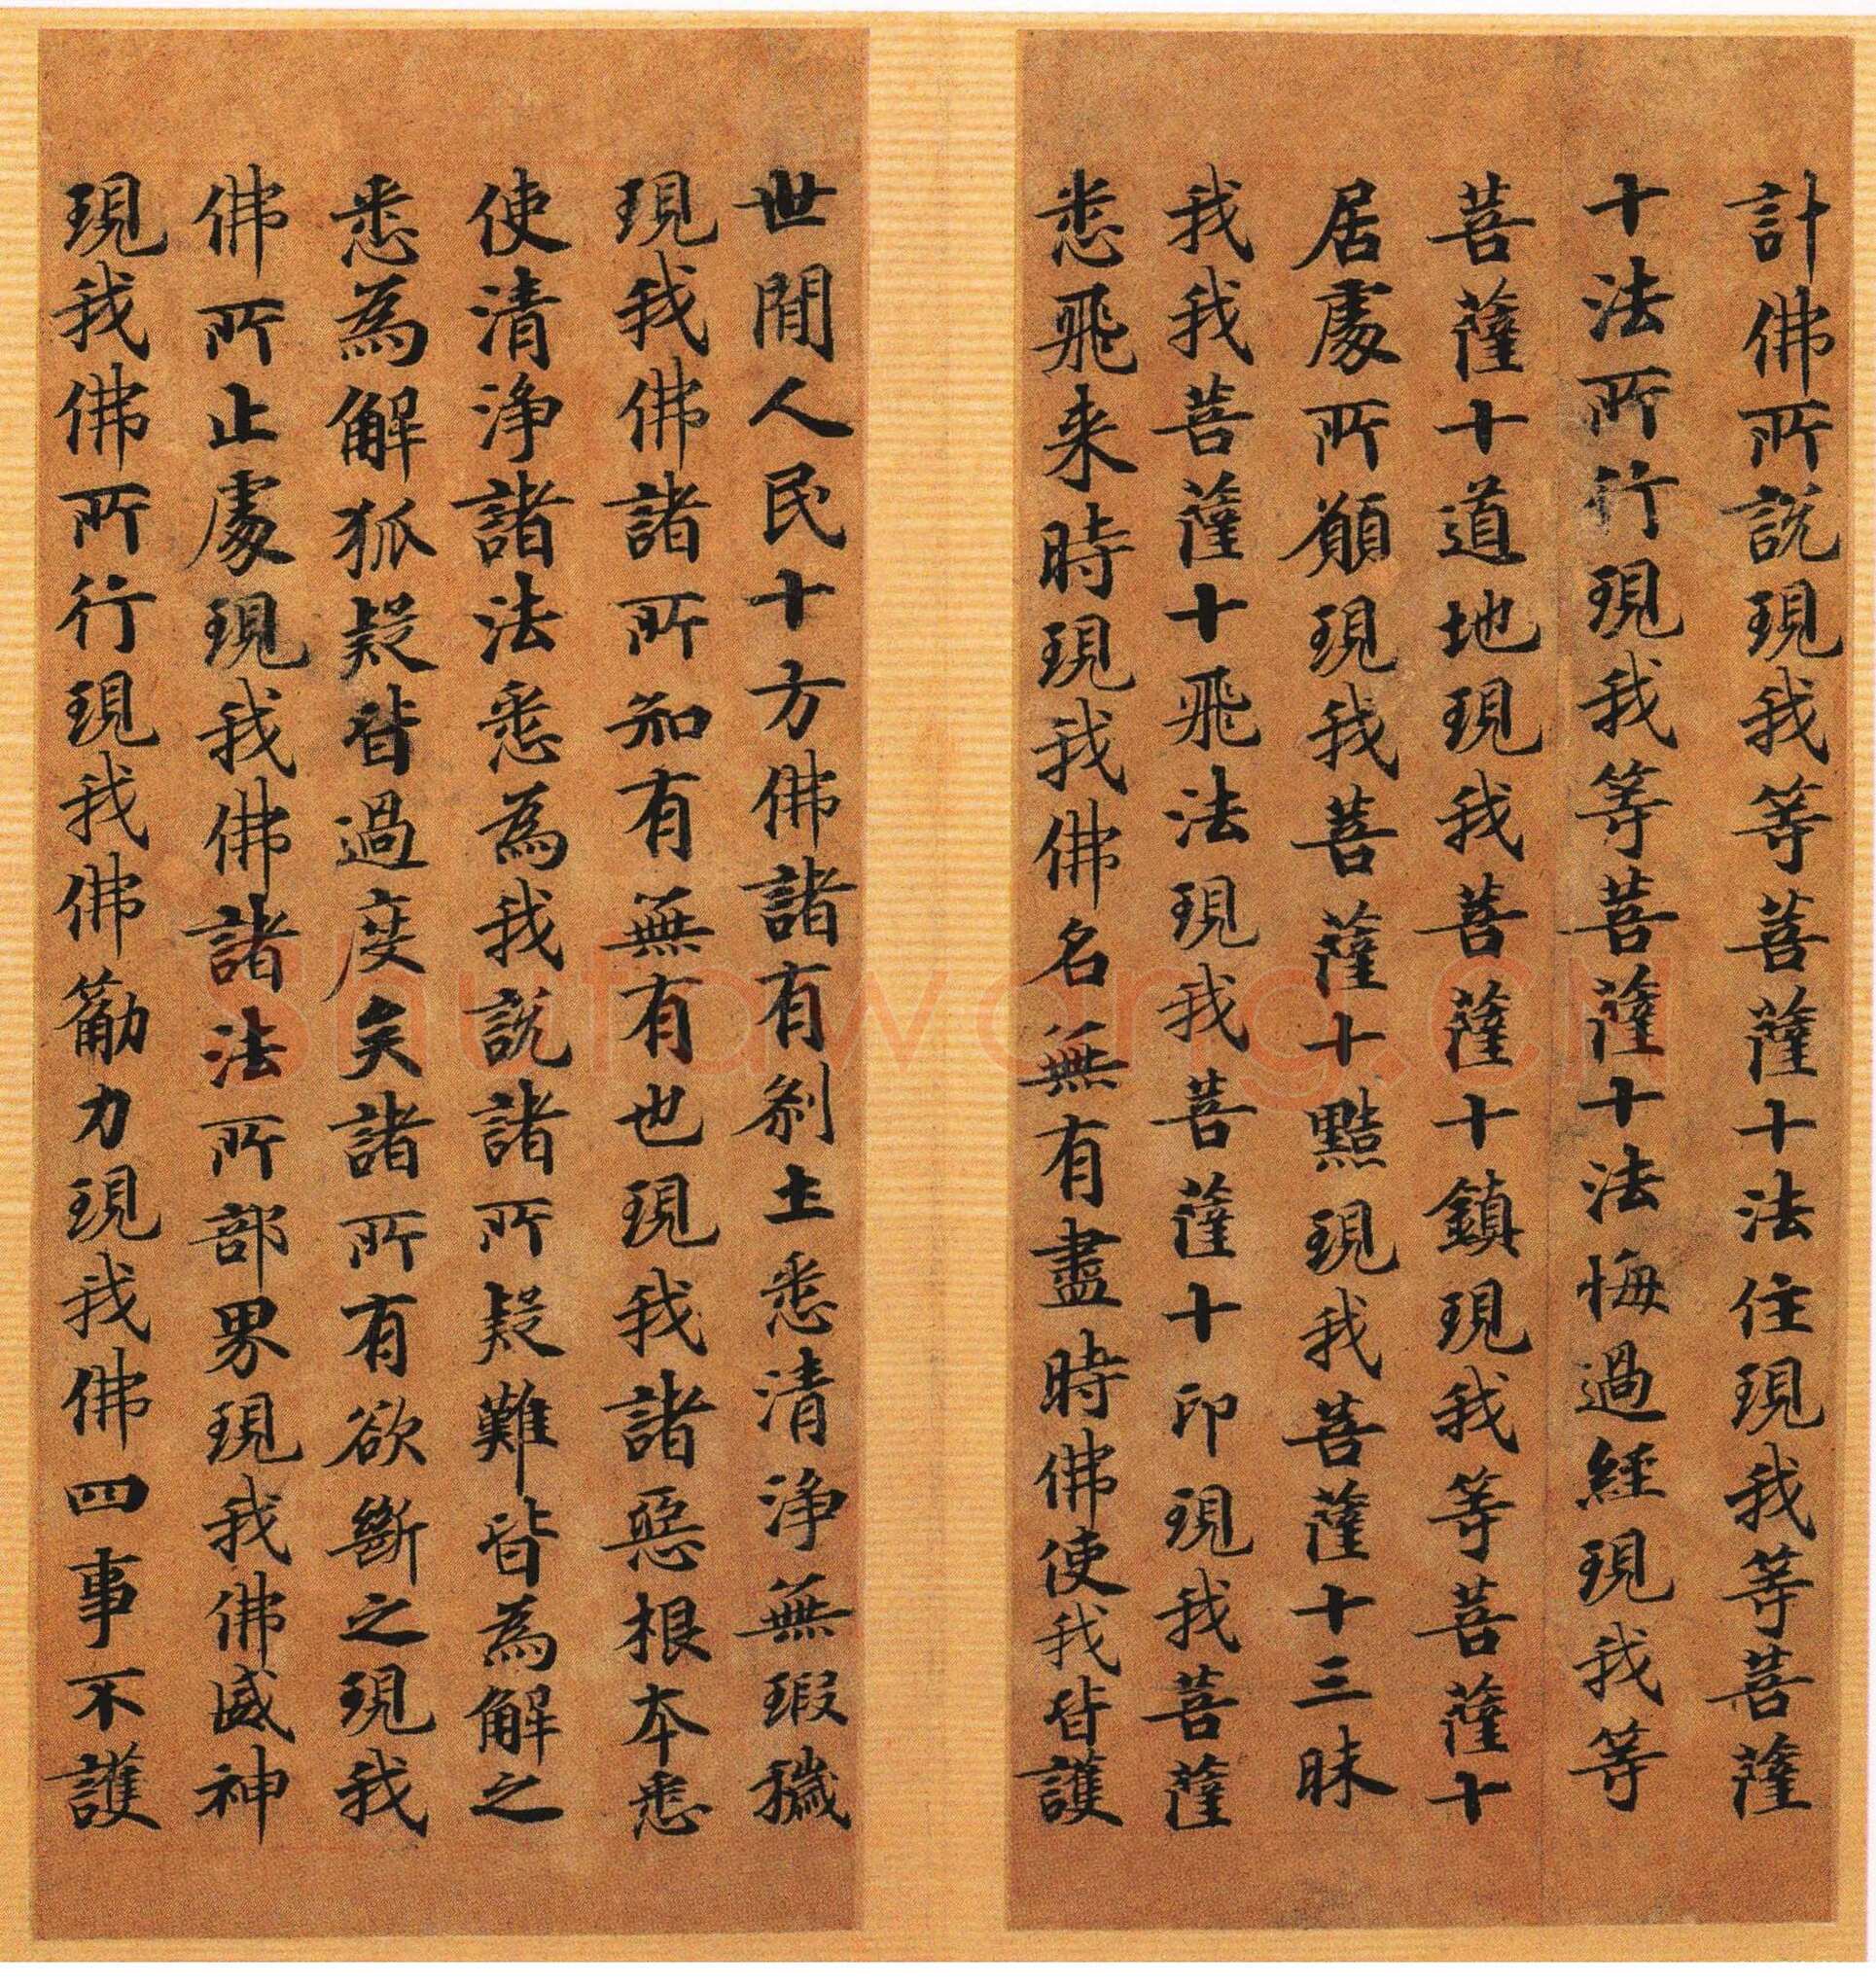 計佛所說現我等菩薩十法住現我等菩薩
十法所行現我等菩薩十法悔過經現我等
菩薩十道地現我菩薩十鎮現我等菩薩十
居處所願現我菩薩十黠現我菩薩十三昧
我我菩薩十飛法現我菩薩十印現我菩薩
悉飛来時現我佛名無有盡時佛使我皆護
世間人民十方佛諸有剎土悉清淨無瑕穢
現我佛諸所知有無有也現我諸惡根本悉
使清淨諸法悉為我說諸所疑難皆為解之
悉為解狐疑皆過度矣諸所有欲斷之現我
佛所止處現我佛諸法所部界現我佛威神
現我佛所行現我佛筋力現我佛四事不護
shufawang.cn